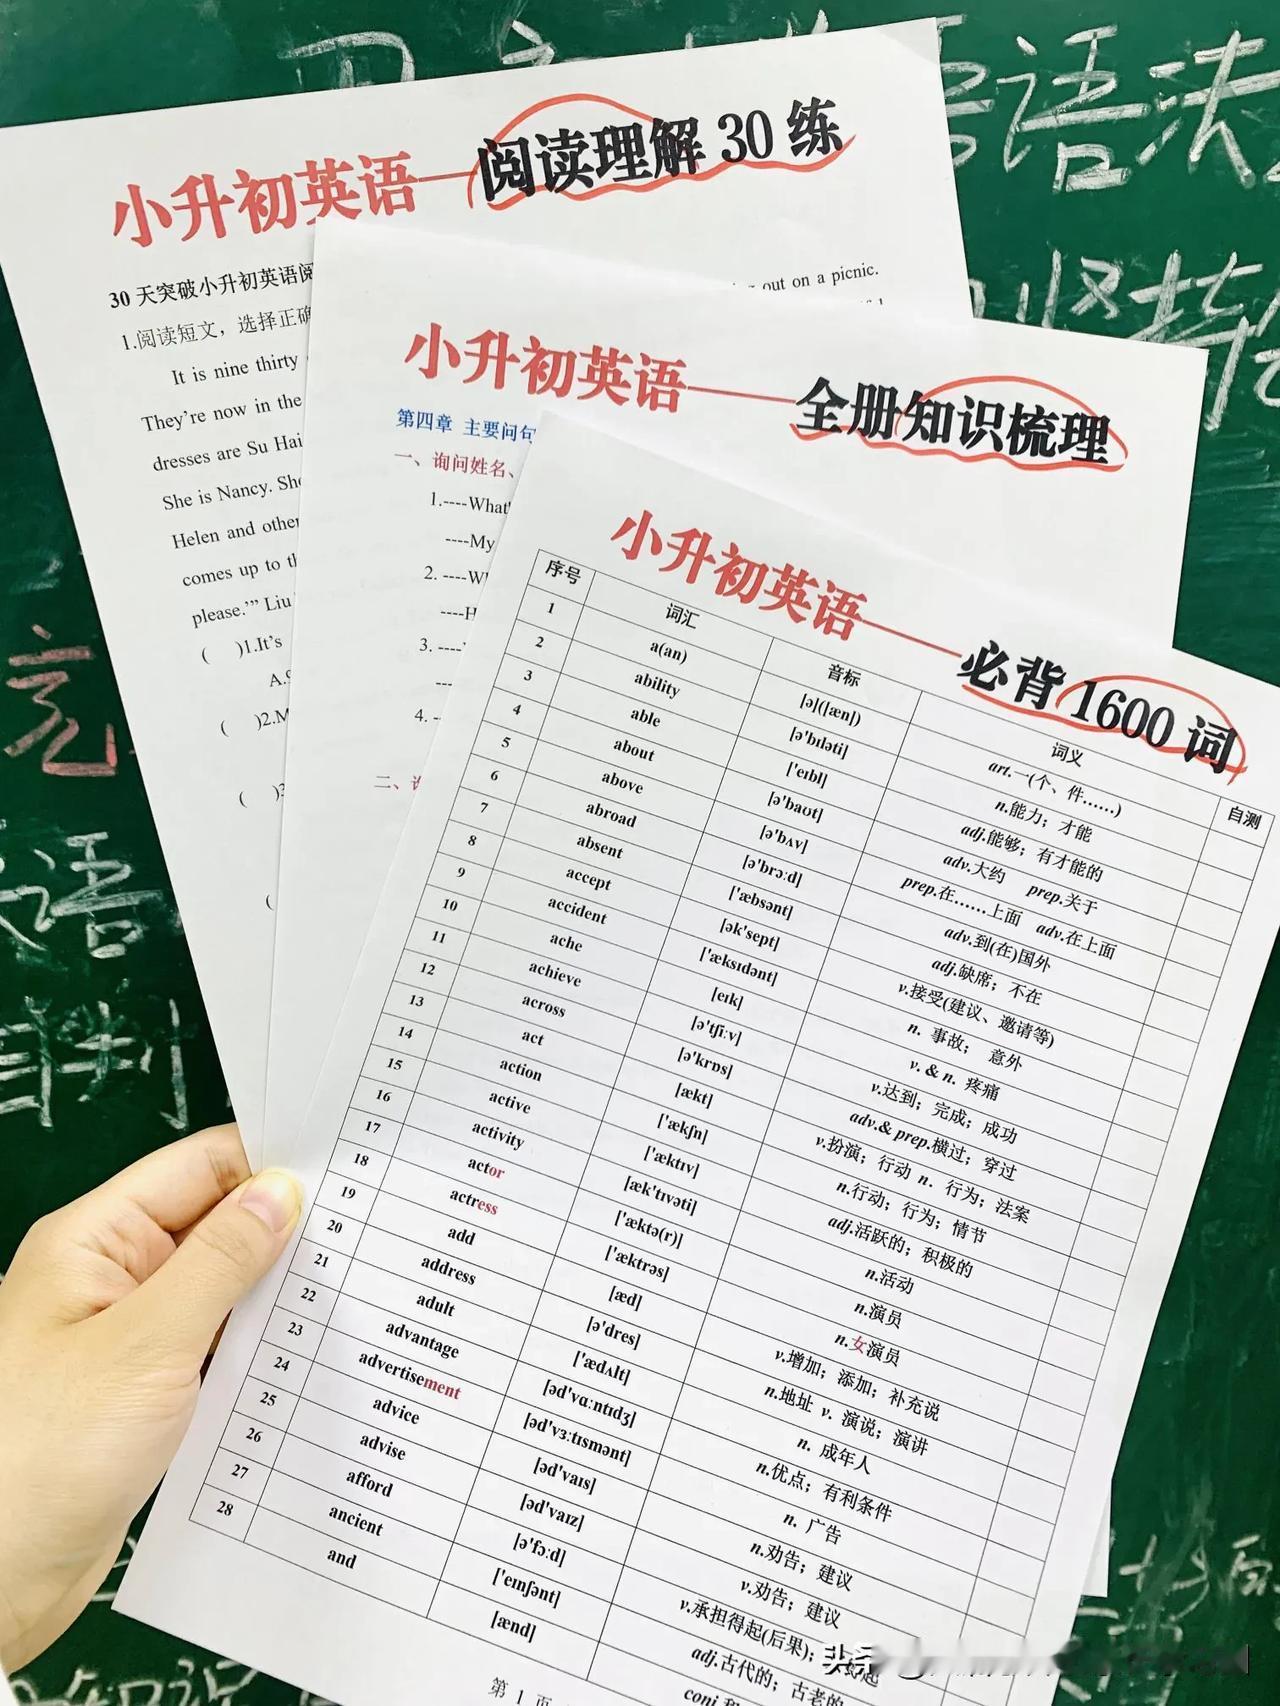 语法
坚持
竞
语
小升初英语——阅读理解30练
30天突破小升初英语阅
out on a picnic.
1.阅读短文，选择正确
It is nine thirty
They're now in the
dresses are Su Hai
She is Nancy. She
Helen and other
comes up to th
please.'” Liu
( )1.It's
( )2.M
小升初英语——全册知识梳理
第四章 主要问句
一、询问姓名、
1.----What'
----My
2. ----Wh
----H
3. ----
4. --
二、
小升初英语——必背1600词
序号 词汇 音标 词义 自测
1 a(an) [ə]([æn]) art.一(个、件……)
2 ability [ə'bɪləti] n.能力；才能
3 able ['eɪbl] adj.能够；有才能的
4 about [ə'baʊt] adv.大约 prep.关于
5 above [ə'bʌv] prep.在……上面 adv.在上面
6 abroad [ə'brɔːd] adv.到(在)国外
7 absent ['æbsənt] adj.缺席；不在
8 accept [ək'sept] v.接受(建议、邀请等)
9 accident ['æksɪdənt] n. 事故； 意外
10 ache [eɪk] v. & n. 疼痛
11 achieve [ə'tʃiːv] v.达到；完成；成功
12 across [ə'krɒs] adv.& prep.横过；穿过
13 act [ækt] v.扮演；行动 n. 行为；法案
14 action ['ækʃn] n.行动；行为；情节
15 active ['æktɪv] adj.活跃的；积极的
16 activity [æk'tɪvəti] n.活动
17 actor ['æktə(r)] n.演员
18 actress ['æktrəs] n.女演员
19 add [æd] v.增加；添加；补充说
20 address [ə'dres] n.地址 v. 演说；演讲
21 adult ['ædʌlt] n. 成年人
22 advantage [əd'vɑːntɪdʒ] n.优点；有利条件
23 advertisement [əd'vɜːtɪsmənt] n. 广告
24 advice [əd'vaɪs] n.劝告；建议
25 advise [əd'vaɪz] v.劝告；建议
26 afford [ə'fɔːd] v.承担得起(后果)；
27 ancient ['eɪnʃənt] adj.古代的；古老的
28 and [ænd] conj.和
第 1 页
头条